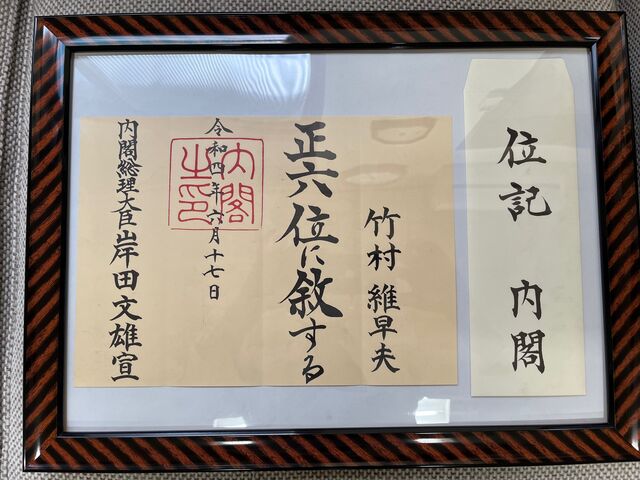 位記 内閣
竹村維早夫
正六位に敘する
令和四年六月十七日
内閣之印
内閣総理大臣岸田文雄宣